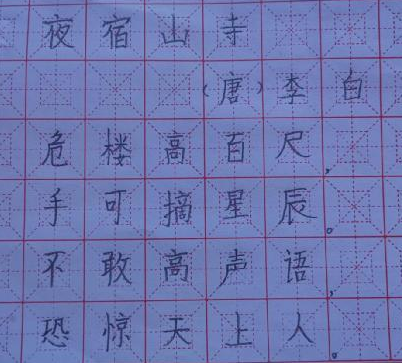 夜宿山寺
（唐）李白
危楼高百尺，
手可摘星辰。
不敢高声语，
恐惊天上人。